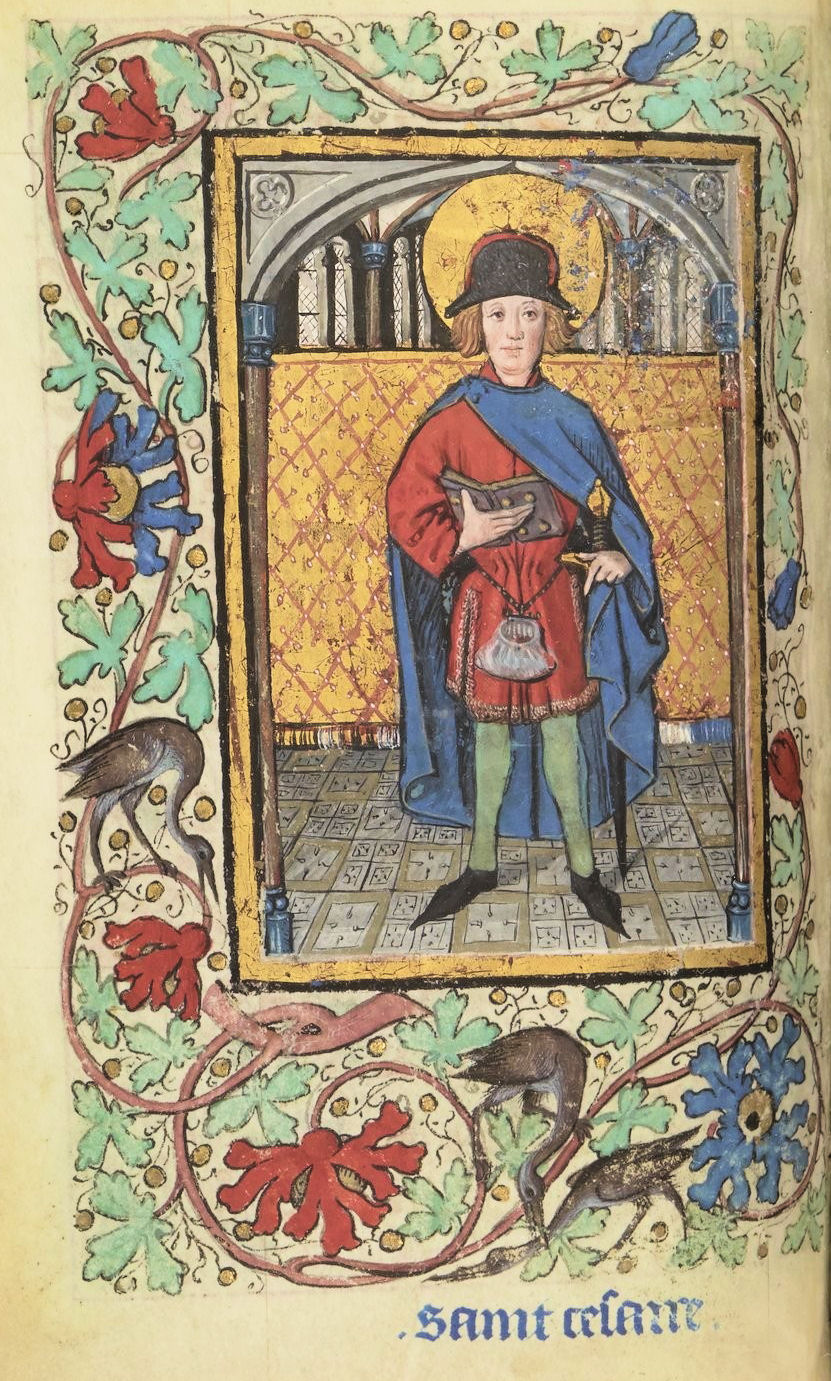 .Saint ceſaire.